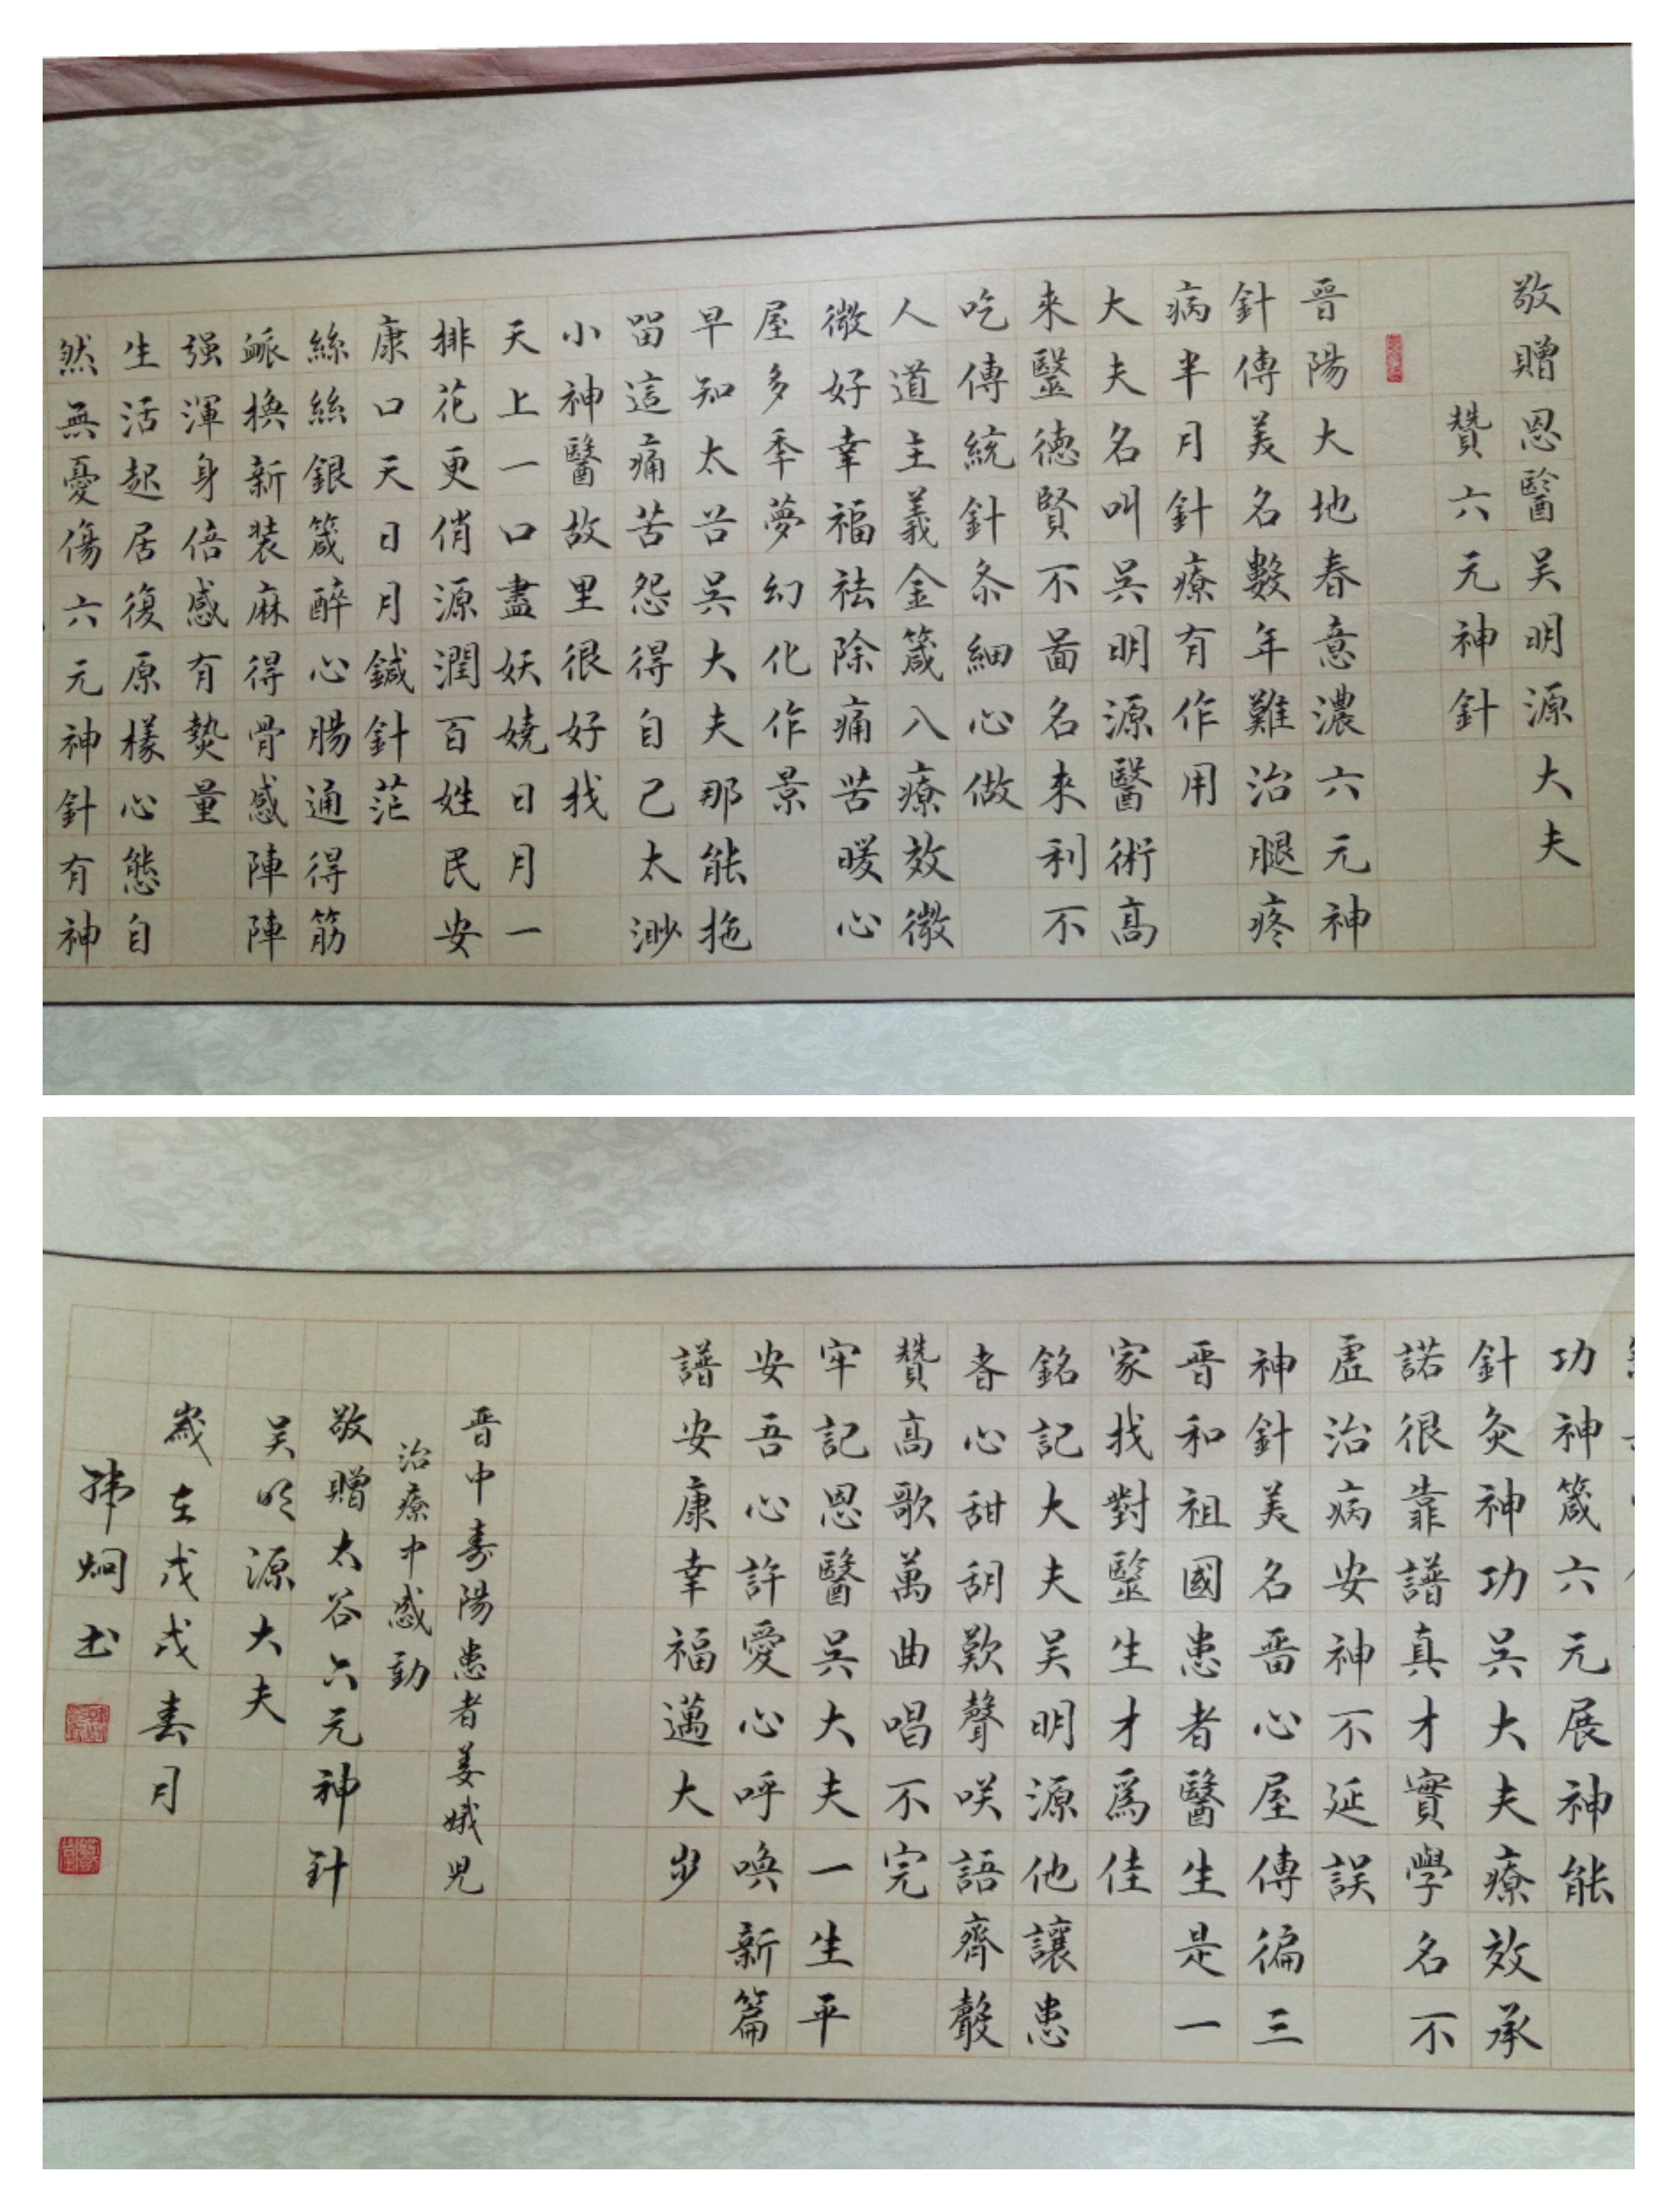 敬贈恩醫吴明源大夫
贊六元神針
晉陽大地春意濃六元神
針傳美名數年難治腿疼
病半月針療有作用
大夫名叫吴明源醫術高
來醫德賢不啚名來利不
吃傳統針条細心做
人道主義金箴八療效微
微好幸福祛除痛苦暖心
屋多季夢幻化作景
早知太谷吴大夫那能拖
留這痛苦怨得自己太渺
小神醫故里很好找
天上一口盡妖嬈日月一
排花更俏源潤百姓民安
康口天日月鍼針茫
絲絲銀箴醉心腸通得筋
脈換新装麻得骨感陣陣
强渾身倍感有熱量
生活起居復原樣心態自
然無憂傷六元神針有神
功神箴六元展神能
針灸神功吴大夫療效承
諾很靠譜真才實學名不
虚治病安神不延誤
神針美名晋心屋傳徧三
晋和祖國患者醫生是一
家找對醫生才爲佳
銘記大夫吴明源他讓患
者心甜胡歎聲咲語齊聲
贊高歌萬曲唱不完
牢記恩醫吴大夫一生平
安吾心許愛心呼喚新篇
譜安康幸福邁大步
晋中寿陽患者姜娥児
治療中感動
敬贈太谷六元神針
吴明源大夫
歲在戊戌春月
炯书